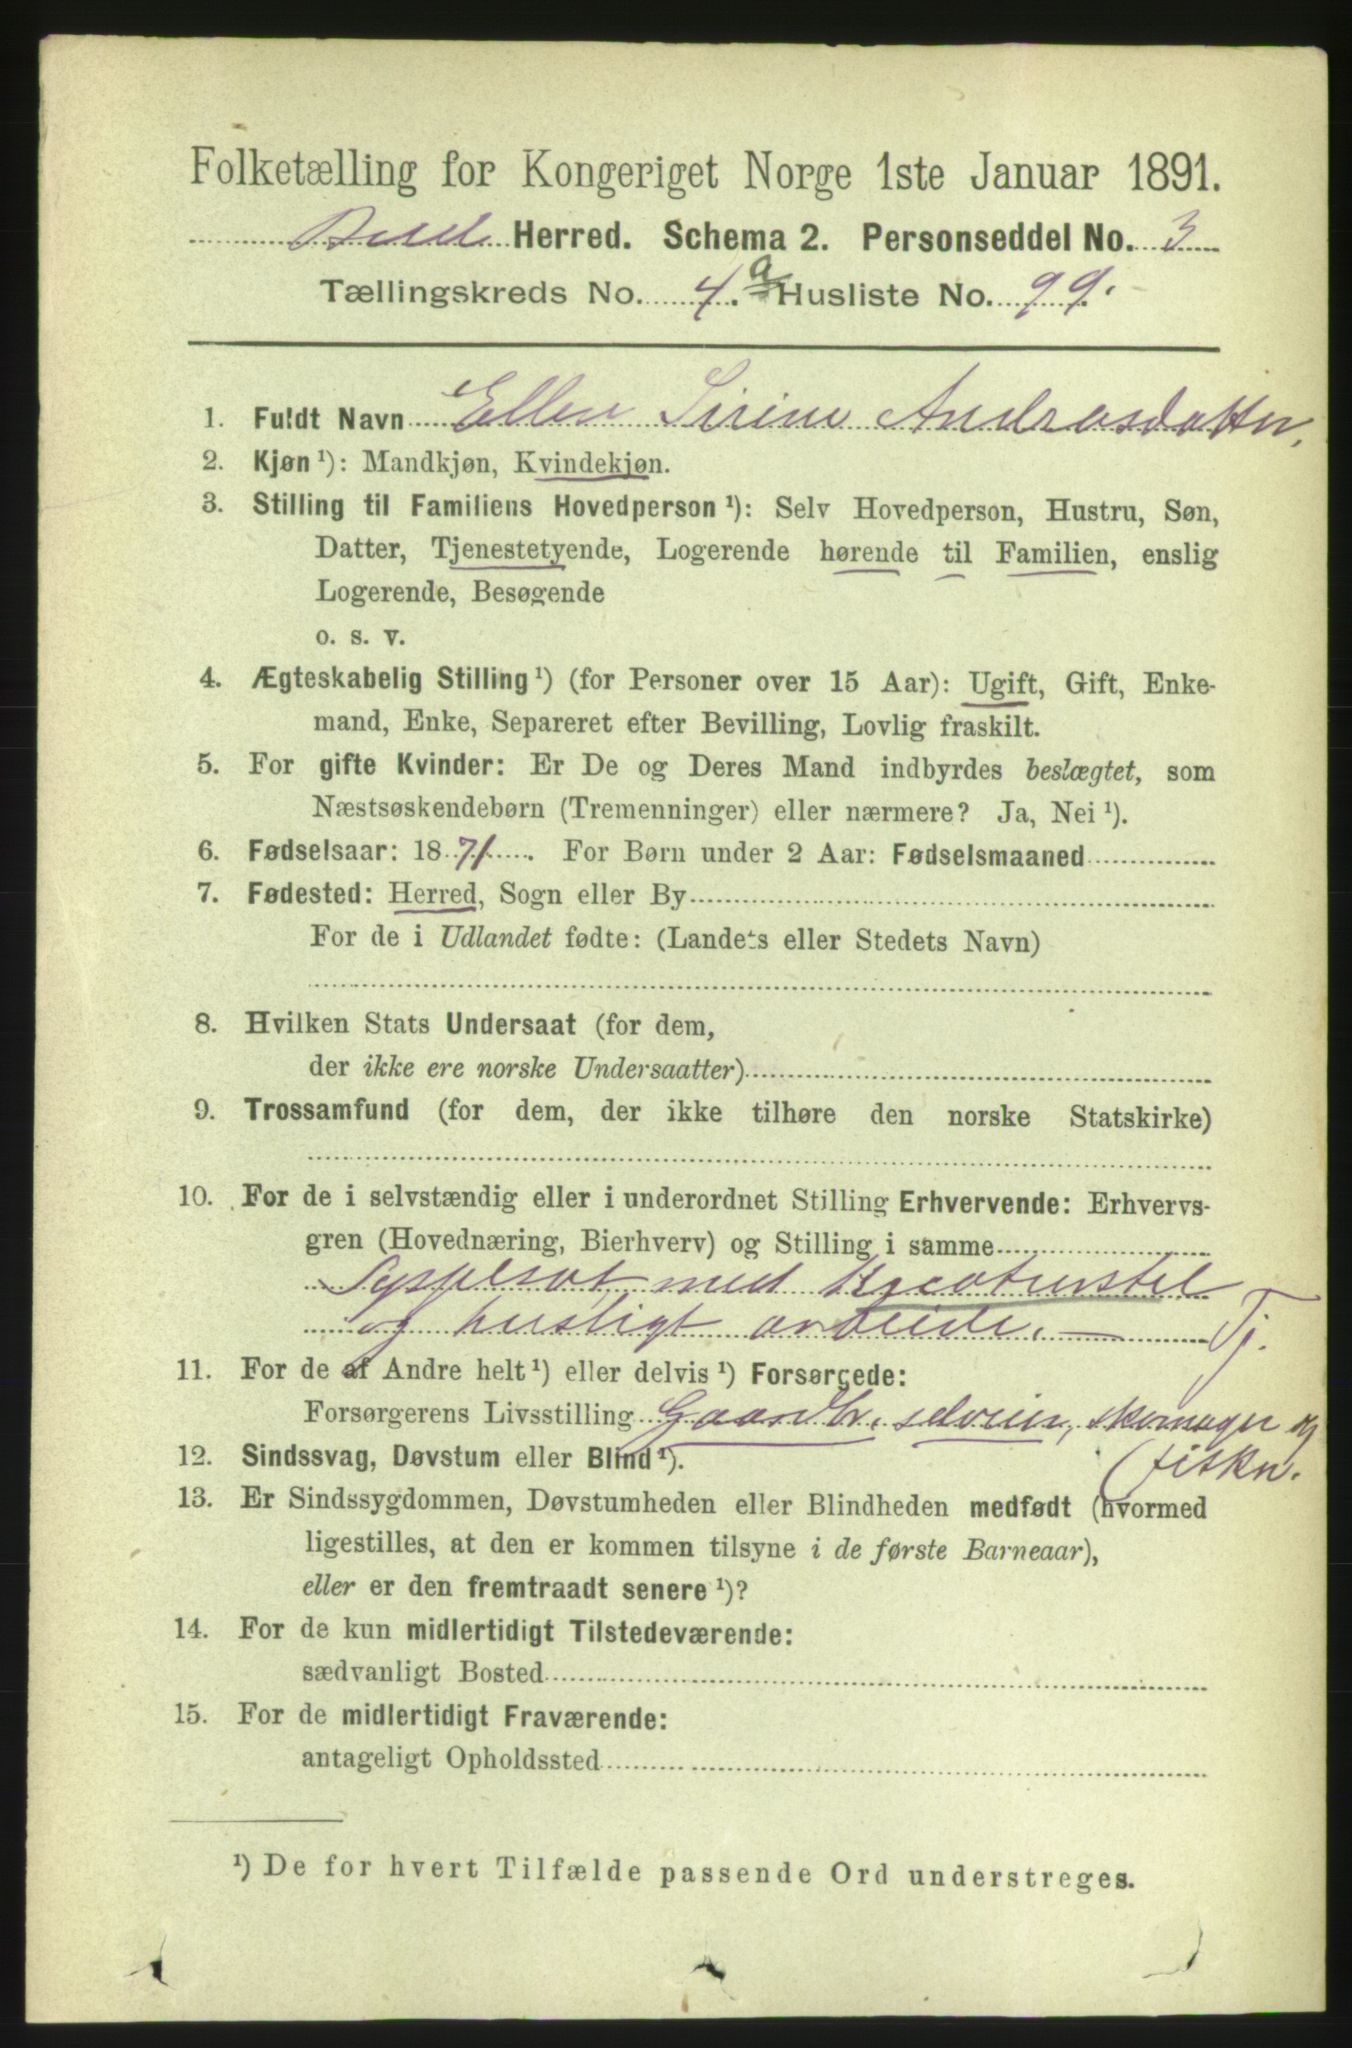 Folketælling for Kongeriget Norge 1ste Januar 1891.
Bud Herred. Schema 2. Personseddel No. 3
Tællingskreds No. 4.a Husliste No. 99.
1. Fuldt Navn Ellen Sirine Andreasdatter.
2. Kjøn ¹): Mandkjøn, Kvindekjøn.
3. Stilling til Familiens Hovedperson ¹): Selv Hovedperson, Hustru, Søn,
Datter, Tjenestetyende, Logerende hørende til Familien, enslig
Logerende, Besøgende
o. s. v.
4. Ægteskabelig Stilling ¹) (for Personer over 15 Aar): Ugift, Gift, Enke-
mand, Enke, Separeret efter Bevilling, Lovlig fraskilt.
5. For gifte Kvinder: Er De og Deres Mand indbyrdes beslægtet, som
Næstsøskendebørn (Tremenninger) eller nærmere? Ja, Nei ¹).
6. Fødselsaar: 1871. For Børn under 2 Aar: Fødselsmaaned
7. Fødested: Herred, Sogn eller By
For de i Udlandet fødte: (Landets eller Stedets Navn)
8. Hvilken Stats Undersaat (for dem,
der ikke ere norske Undersaatter)
9. Trossamfund (for dem, der ikke tilhøre den norske Statskirke)
10. For de i selvstændig eller i underordnet Stilling Erhvervende: Erhvervs-
gren (Hovednæring, Bierhverv) og Stilling i samme
Sysselsat med Kreaturstel
og husligt arbeide. — Tj.
11. For de af Andre helt ¹) eller delvis ¹) Forsørgede:
Forsørgerens Livsstilling Gaardbr. selveier, skomager og
fisker.
12. Sindssvag, Døvstum eller Blind ¹).
13. Er Sindssygdommen, Døvstumheden eller Blindheden medfødt (hvormed
ligestilles, at den er kommen tilsyne i de første Barneaar),
eller er den fremtraadt senere ¹)?
14. For de kun midlertidigt Tilstedeværende:
sædvanligt Bosted
15. For de midlertidigt Fraværende:
antageligt Opholdssted
¹) De for hvert Tilfælde passende Ord understreges.